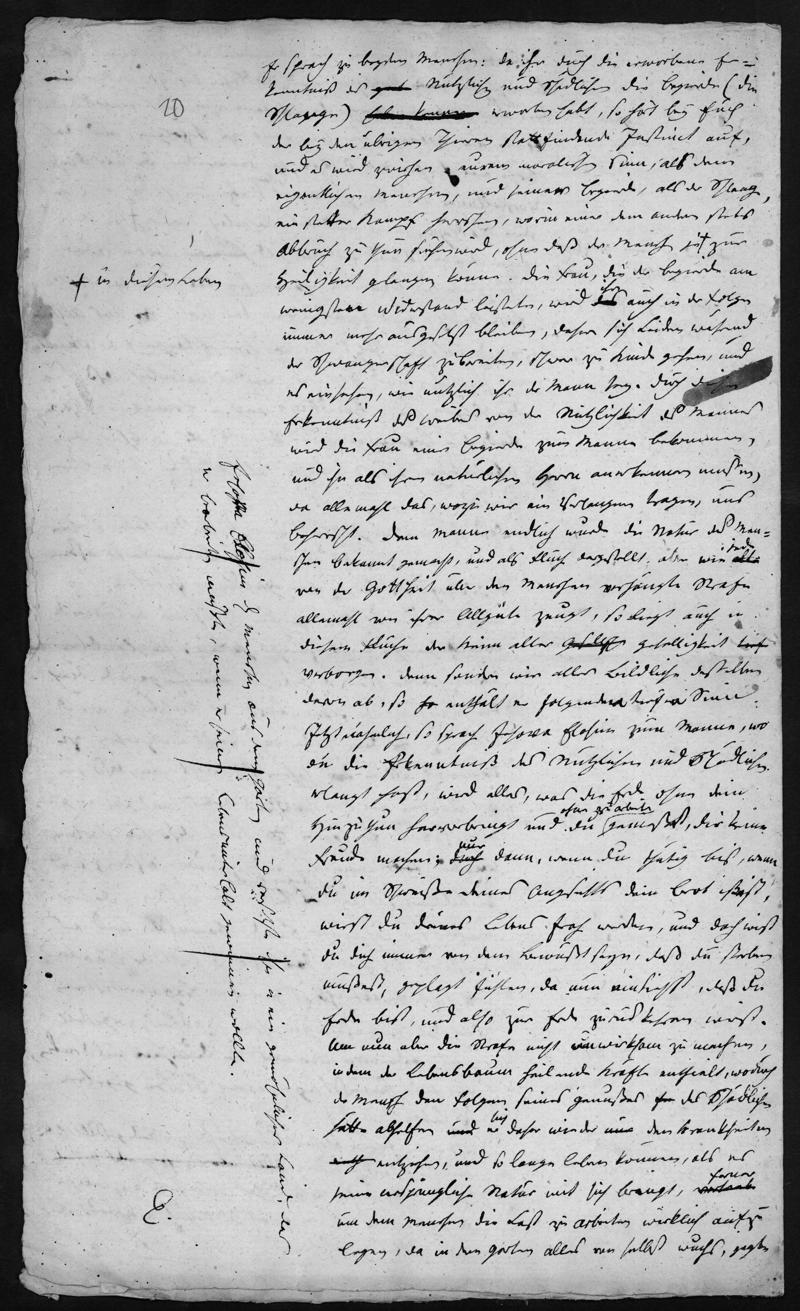 20
Er sprach zu beyden Menschen: da ihr durch die erworbene Er-
kenntniß des gut Nützlichen und Schädlichen die Begierde (die
Schlange) erworben habt, so hört bey Euch
der bey den übrigen Thieren stattfindende Instinct auf,
und es wird zwischen eurem moralischen Sinn, als dem
eigentlichen Menschen, und seiner Begierde, als der Schlange,
ein steter Kampf herrschen, worin einer dem andern stets
Abbruch zu thun suchen wird, ohne daß der Mensch je + zur
+ in diesem Leben
Heiligkeit gelangen könne. Die Frau, die der Begierde am
wenigsten Widerstand leistete, wird ihr auch in der Folge
immer mehr ausgesetzt bleiben, daher sich Leiden während
der Schwangerschaft zubereiten, schwer zu Kinde gehen, und
es einsehen, wie nützlich ihr der Mann sey. Durch diese
Erkenntniß des Weibes von der Nützlichkeit des Mannes
wird die Frau eine Begierde zum Manne bekommen,
und ihn als ihren natürlichen Herrn anerkennen müssen,
da allemahl das, wozu wir ein Verlangen tragen, uns
beherrscht. Dem Manne endlich wurde die Natur des Men-
schen bekannt gemacht, und als Fluch dargestellt. Aber wie jede
von der Gottheit über den Menschen verhängte Strafe
allemahl von ihrer Allgüte zeugt, so liegt auch in
diesem Fluche der Keim aller Geselligkeit
verborgen. Denn sondern wir alles Bildliche desselben
davon ab, so enthält er folgenden tiefen Sinn.
Jetzt nehmlich, so sprach Jehova Elohim zum Manne, wo
du die Erkenntniß des Nützlichen und Schädlichen
erlangt hast, wird alles, was die Erde ohne dein
Hinzuthun hervorbringt und du ohne zu arbeiten genießest, dir keine
Freude machen; nur dann, wenn du thätig bist, wenn
du im Schweiße deines Angesichts dein Brot issest,
wirst du deines Lebens froh werden, und doch wirst
du dich immer von dem Bewußtseyn, daß du sterben
müßest, geplagt fühlen, da nun einsiehst, daß du
Erde bist, und also zur Erde zurückkehren wirst.
Um nun aber die Strafe nicht unwirksam zu machen,
indem der Lebensbaum heilende Kräfte enthielt, wodurch
der Mensch den Folgen seines Genußes des Schädlichen
hätte abhelfen und daher wieder den Krankheiten
entziehen, und so lange leben können, als es
seine ursprüngliche Natur mit sich bringt, ferner
um dem Menschen die Last zu arbeiten wirklich aufzu
legen, da in dem Garten alles von selbst wuchs, jagte
Jehova Elohim den Menschen aus dem Garten und versetzte ihn in ein Land, das
er bearbeiten mußte, wenn er seinen Lebensunterhalt gewinnen wollte.